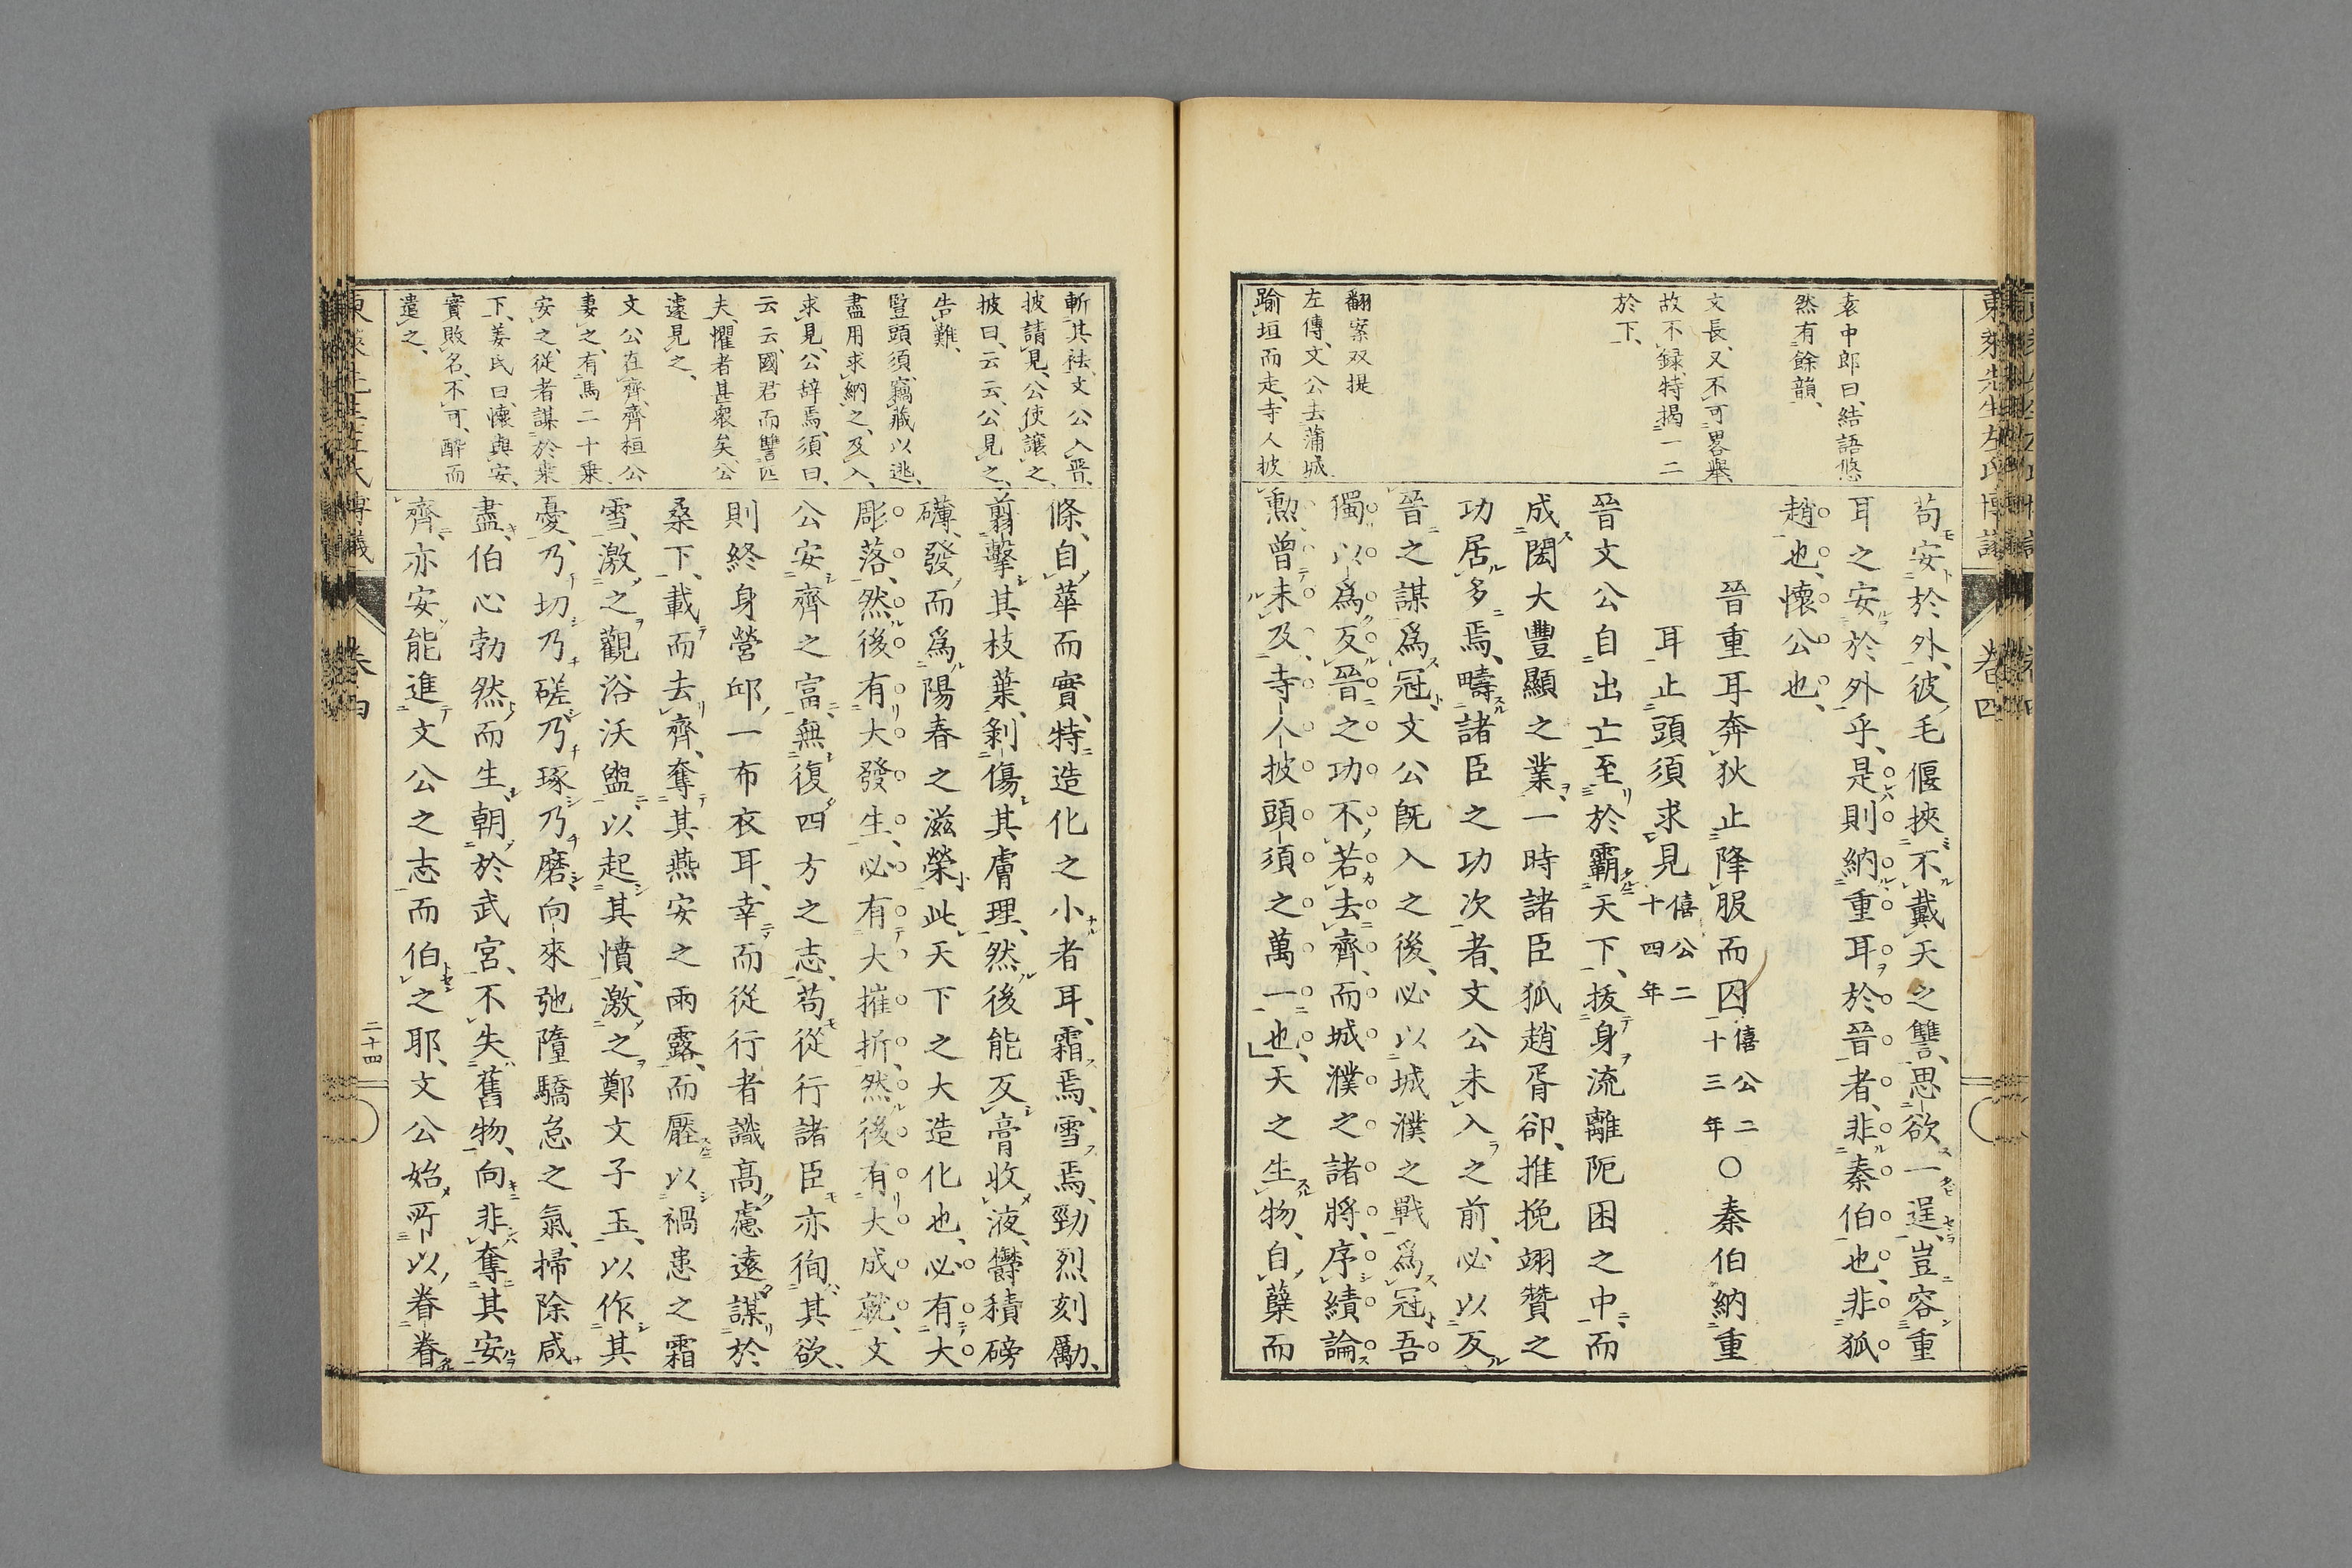 東萊先生左氏博議 卷四
袁中郎曰、結語悠
然有餘韻、
文長、又不可畧舉
故不録、特揭一二
於下、
翻案双提
左傳、文公去蒲城
踰垣而走、寺人披
苟安於外、彼毛偃挾不戴天之讐、思欲一逞、豈容重
耳之安於外乎、是則納重耳於晉者、非秦伯也、非狐
趙也、懷公也、
晉重耳奔狄止降服而囚僖公二十三年〇秦伯納重
耳止頭須求見僖公二十四年
晉文公自出亡至於霸天下、拔身流離阨困之中、而
成閎大豐顯之業、一時諸臣狐趙胥卻、推挽翊贊之
功居多焉、疇諸臣之功次者、文公未入之前、必以反
晉之謀爲冠、文公旣入之後、必以城濮之戰爲冠、吾
獨以爲反晉之功不若去齊、而城濮之諸將、序績論
勲曾未及寺人披頭須之萬一也、天之生物、自蘖而
斬其袪、文公入晋、
披請見、公使讓之、
披曰、云云、公見之、
告難、
豎頭須、竊藏以逃、
盡用求納之、及入、
求見、公辞焉、須曰、
云云、國君而讐匹
夫、懼者甚衆矣、公
遽見之、
文公在齊、齊桓公
妻之、有馬二十乗
安之、従者謀於桒
下、姜氏曰、懐與安、
實敗名、不可、酔而
遣之、
條、自華而實、特造化之小者耳、霜焉、雪焉、勁烈刻勵、
翦擊其枝葉、剝傷其膚理、然後能反膏收液、欝積磅
礴、發而爲陽春之滋榮、此天下之大造化也、必有大
彫落、然後有大發生、必有大摧折、然後有大成就、文
公安齊之富、無復四方之志、苟從行諸臣亦徇其欲、
則終身營邱一布衣耳、幸而從行者識高慮遠、謀於
桑下、載而去齊、奪其燕安之雨露、而壓以禍患之霜
雪、激之觀浴沃盥、以起其憤、激之鄭文子玉、以作其
憂、乃切乃磋乃琢乃磨、向來弛隳驕怠之氣、掃除咸
盡、伯心勃然而生、朝於武宮、不失舊物、向非奪其安
齊、亦安能進文公之志而伯之耶、文公始所以眷眷
東萊先生左氏博議 卷四 二十四